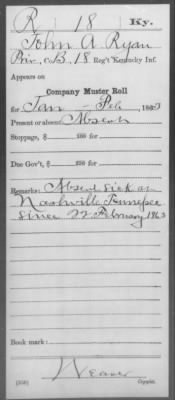 R 18 Ky.
John A Ryan
Priv, Co. B, 18 Reg't Kentucky Inf.
Appears on
Company Muster Roll
for Jan - Feb, 1863
Present or absent Absent
Stoppage, $ 100 for
Due Gov't, $ 100 for
Remarks: Absent Sick at
Nashville Tennessee
Since 22 February 1863
Book mark:
Weaver
(358) Copyist.